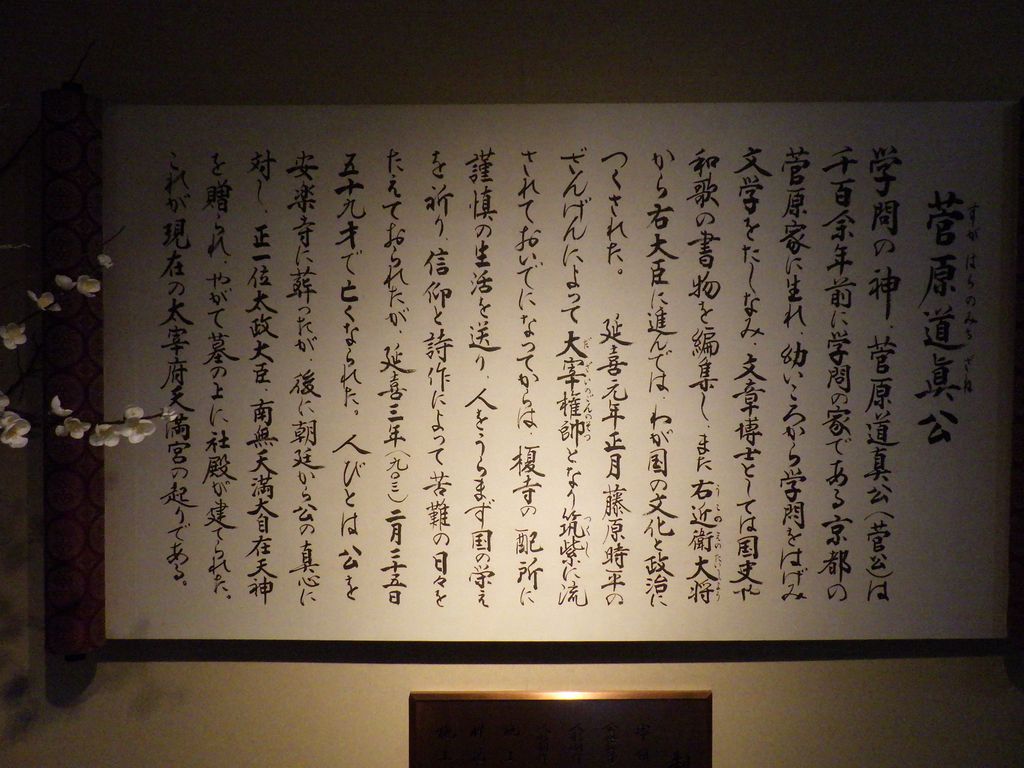 菅原道真公
すが はらのみち ざね
学問の神、菅原道真公(菅公)は
千百余年前に学問の家である京都の
菅原家に生れ、幼いころから学問をはげみ
文学をたしなみ、文章博士としては国史や
和歌の書物を編集し、また右近衛大将
うこのえのたいしょう
から右大臣に進んでは、わが国の文化と政治に
つくされた。 延喜元年正月藤原時平の
ざんげんによって大宰権帥となり筑紫に流
だざいのごんのそつ つくし
されておいでになってからは、榎寺の配所に
謹慎の生活を送り、人をうらまず国の栄え
を祈り、信仰と詩作によって苦難の日々を
たえておられたが、延喜三年(九〇三)二月二十五日
五十九才で亡くなられた。人びとは公を
安楽寺に葬ったが、後に朝廷から公の真心に
対し、正一位太政大臣、南無天満大自在天神
を贈られ、やがて墓の上に社殿が建てられた。
これが現在の太宰府天満宮の起りである。